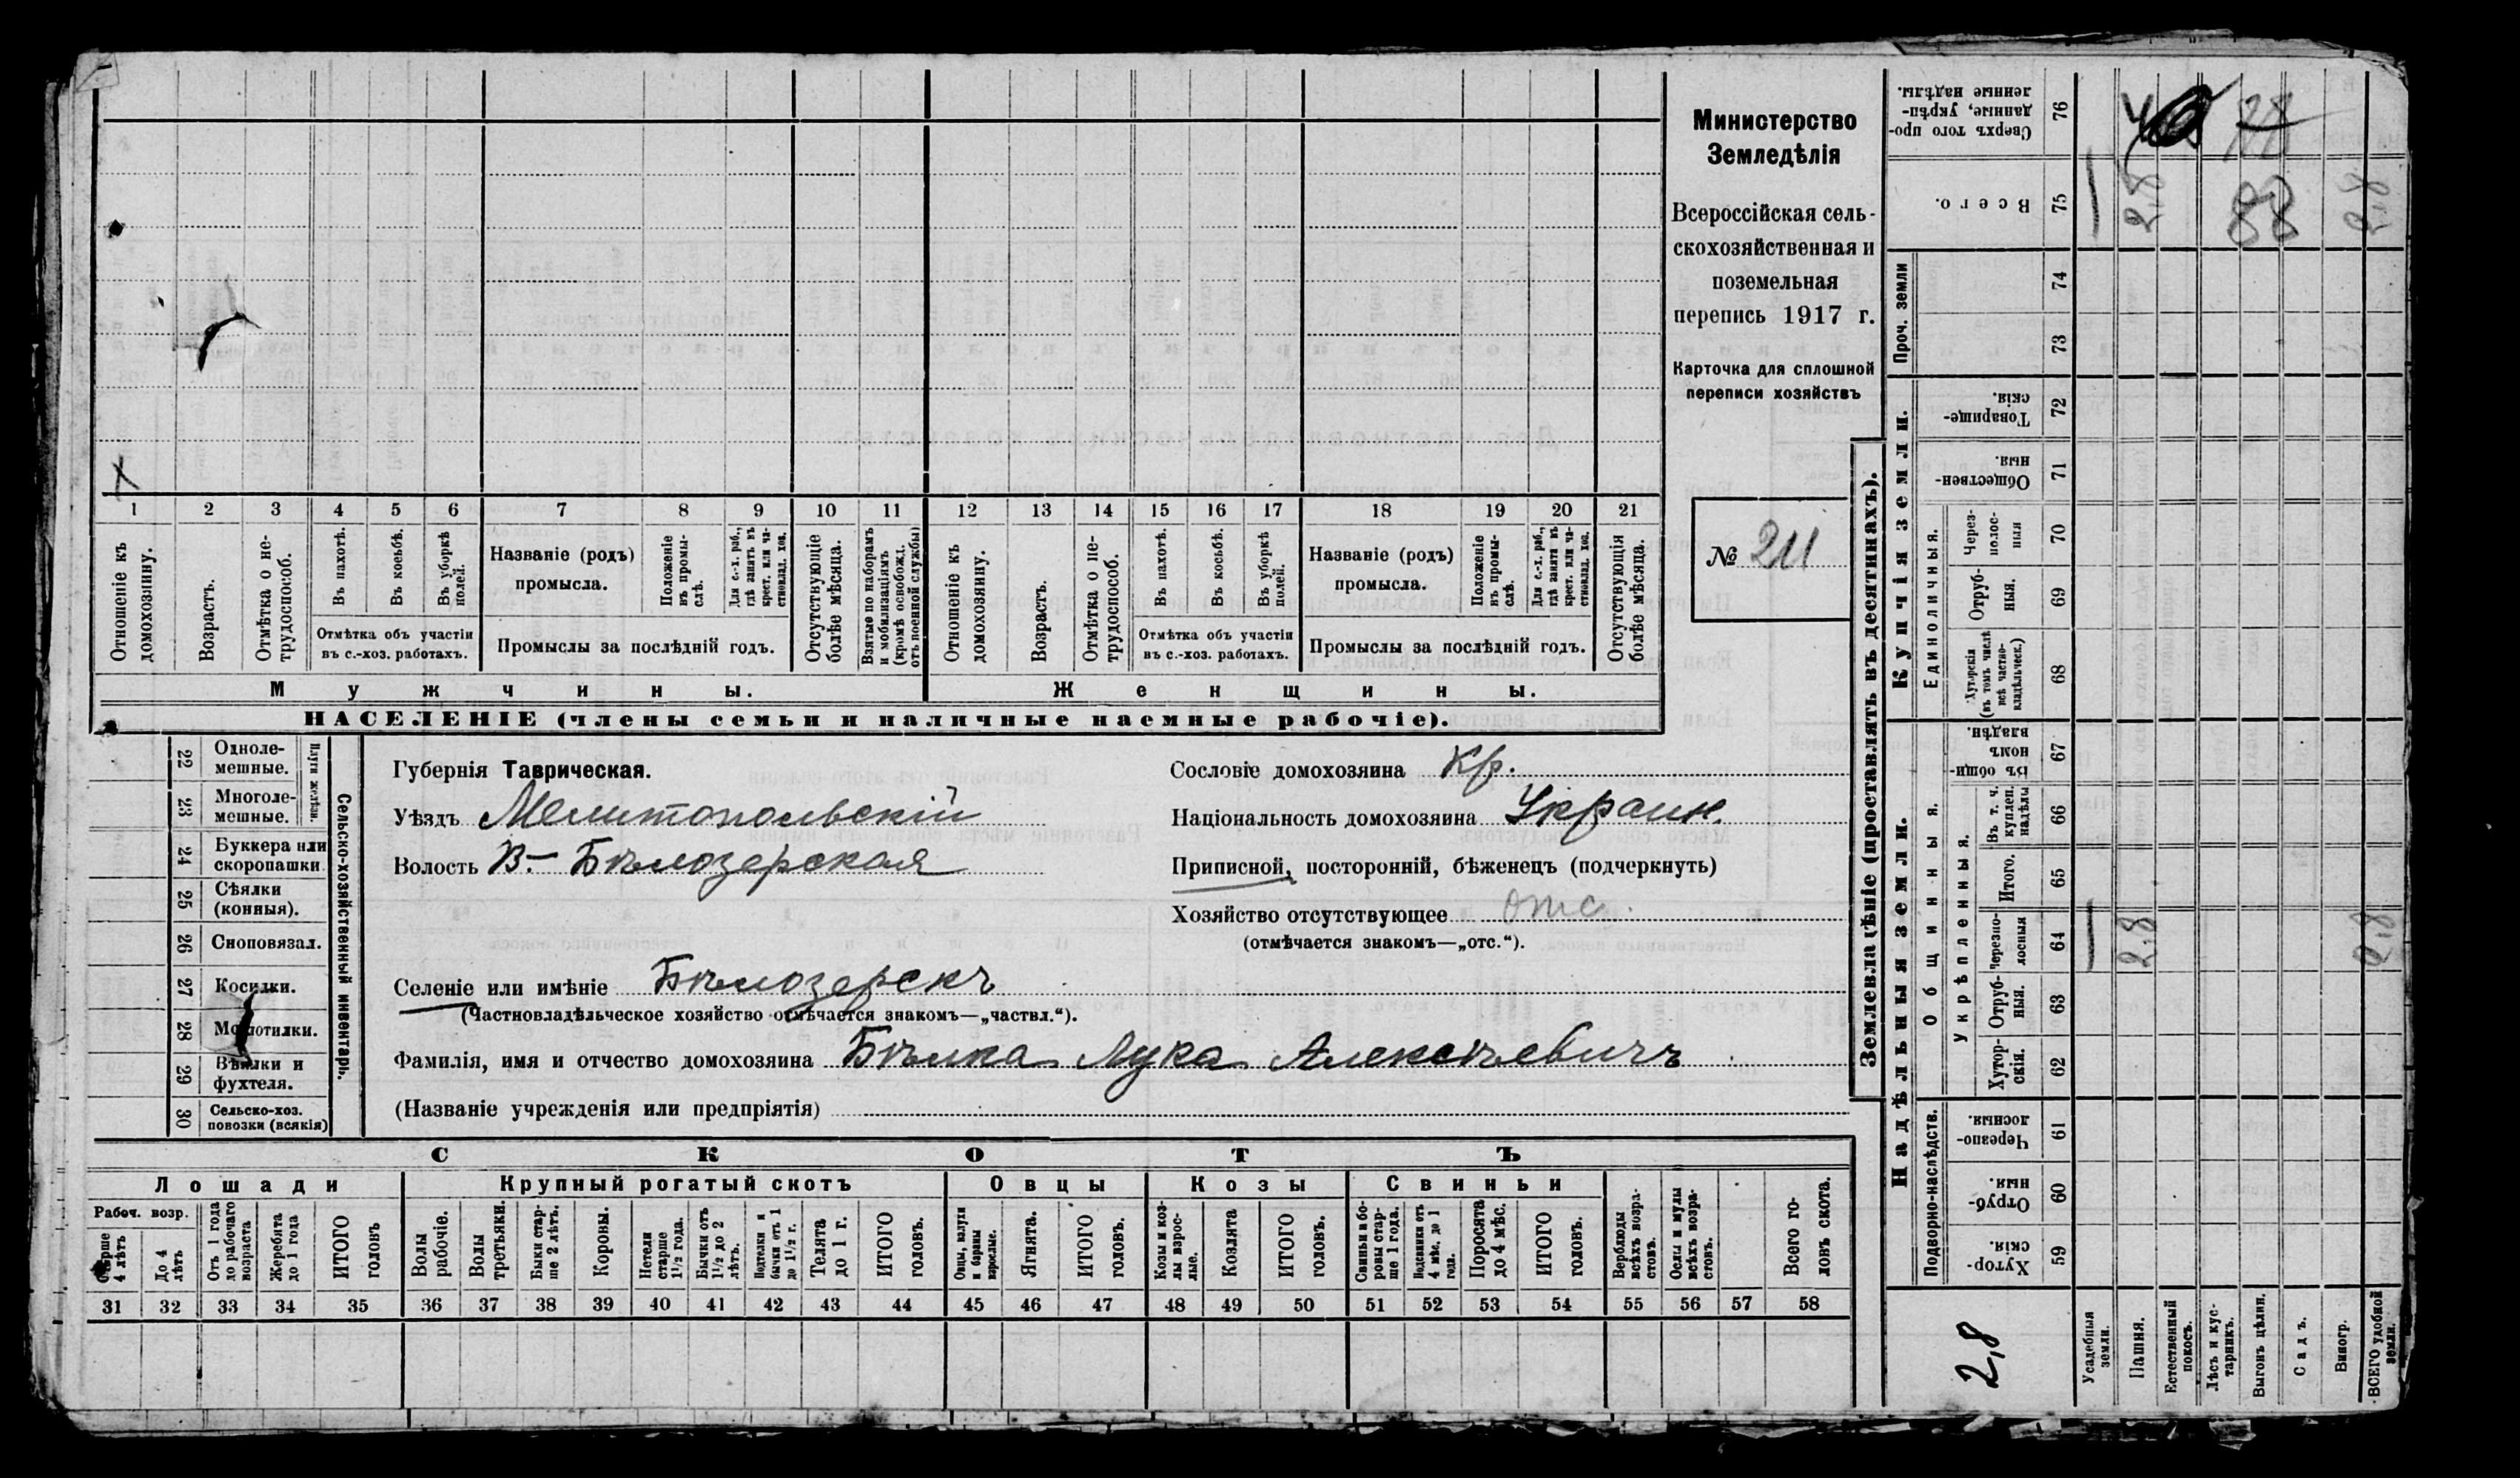 Министерство
Земледѣлія
Всероссійская сель-
скохозяйственная и
поземельная
перепись 1917 г.
Карточка для сплошной
переписи хозяйствъ
№ 211
1 2 3 4 5 6 7 8 9 10 11 12 13 14 15 16 17 18 19 20 21
Отношеніе къ домохозяину.
Возрастъ.
Отмѣтка о не-трудоспособ.
Въ пахотѣ.
Въ косьбѣ.
Въ уборкѣ полей.
Отмѣтка объ участіи
въ с.-хоз. работахъ.
Названіе (родъ)
промысла.
Положеніе въ промы-слѣ.
Для с.-х. раб., гдѣ занятъ въ крест. или ча-стновлад. хоз.
Промыслы за послѣдній годъ.
Отсутствующіе болѣе мѣсяца.
Взятые по наборамъ и мобилизаціямъ (кромѣ освобожд. отъ военной службы)
Отношеніе къ домохозяину.
Возрастъ.
Отмѣтка о не-трудоспособ.
Въ пахотѣ.
Въ косьбѣ.
Въ уборкѣ полей.
Отмѣтка объ участіи
въ с.-хоз. работахъ.
Названіе (родъ)
промысла.
Положеніе въ промы-слѣ.
Для с.-х. раб., гдѣ занятъ въ крест. или ча-стновлад. хоз.
Промыслы за послѣдній годъ.
Отсутствующія болѣе мѣсяца.
Мужчины.
Женщины.
НАСЕЛЕНІЕ (члены семьи и наличные наемные рабочіе).
22 Одноле-мешные.
23 Многоле-мешные.
Плуги желѣзн.
24 Буккера или скоропашки
25 Сѣялки (конныя).
26 Сноповязал.
27 Косилки.
28 Молотилки.
29 Вѣялки и фухтеля.
30 Сельско-хоз. повозки (всякія)
Сельско-хозяйственный инвентарь.
Губернія Таврическая.
Уѣздъ Мелитопольскій
Волость В.- Бѣлозерская
Сословіе домохозяина Кр.
Національность домохозяина Украин.
Приписной, посторонній, бѣженецъ (подчеркнуть)
Хозяйство отсутствующее отс.
(отмѣчается знакомъ—„отс.“).
Селеніе или имѣніе Бѣлозерскъ
(Частновладѣльческое хозяйство отмѣчается знакомъ—„частвл.“).
Фамилія, имя и отчество домохозяина Бѣлка Лука Алексѣевичъ
(Названіе учрежденія или предпріятія)
СКОТЪ
Лошади
Крупный рогатый скотъ
Овцы
Козы
Свиньи
Рабоч. возр.
Старше 4 лѣтъ
До 4 лѣтъ
Отъ 1 года до рабочаго возраста
Жеребята до 1 года
ИТОГО головъ
Волы рабочіе.
Волы третьяки.
Быки стар-ше 2 лѣтъ.
Коровы.
Нетели старше 1 1/2 года.
Бычки отъ 1 1/2 до 2 лѣтъ.
Подтелки и бычки отъ 1 до 1 1/2 г.
Телята до 1 г.
ИТОГО головъ.
Овцы, валухи и бараны взрослые.
Ягнята.
ИТОГО головъ.
Козы и коз-лы взрос-лые.
Козлята
ИТОГО головъ.
Свиньи и бо-ровы стар-ше 1 года.
Подсвинки отъ 4 мѣс. до 1 года.
Поросята до 4 мѣс.
ИТОГО головъ.
Верблюды всѣхъ возра-стовъ.
Ослы и мулы всѣхъ возра-стовъ.
Всего го-ловъ скота.
31 32 33 34 35 36 37 38 39 40 41 42 43 44 45 46 47 48 49 50 51 52 53 54 55 56 57 58
Землевладѣніе (проставлять въ десятинахъ).
Надѣльныя земли.
Купчія земли.
Проч. земли
Подворно-наслѣдств.
Общинныя.
Укрѣпленныя.
Единоличныя.
76 Сверхъ того про-данные, укрѣп-ленные надѣлы.
75 Всего. 2,8 88 2,8
74
73
72 Товарище-скія.
71 Обществен-ныя.
70 Через-полос-ныя
69 Отруб-ныя.
68 Хуторскія (въ томъ числѣ всѣ частно-владѣльческ.)
67 Въ общин-номъ владѣн.
66 Въ т. ч. куплен. надѣлы
65 Итого.
64 Черезпо-лосныя 2.8 2,8
63 Отруб-ныя.
62 Хутор-скія.
61 Черезпо-лосныя.
60 Отруб-ныя.
59 Хутор-скія.
2,8
Усадебныя земли.
Пашня.
Естественный покосъ.
Лѣсъ и кус-тарникъ.
Выгонъ цѣлин.
Садъ.
Виногр.
ВСЕГО удобной земли.